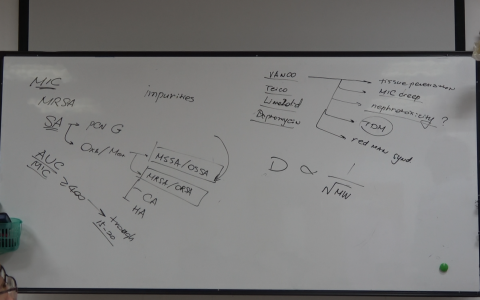 MIC
MRSA
SA
PCN G
Oxa/Meth
MSSA/OSSA
MRSA/ORSA
CA
HA
AUC
MIC
≥400
trough
15-20
impurities
VANCO
Teico
Linezolid
Daptomycin
tissue penetration
MIC creep
nephrotoxicity ?
TDM
red man synd
D ∝ 1
√MW